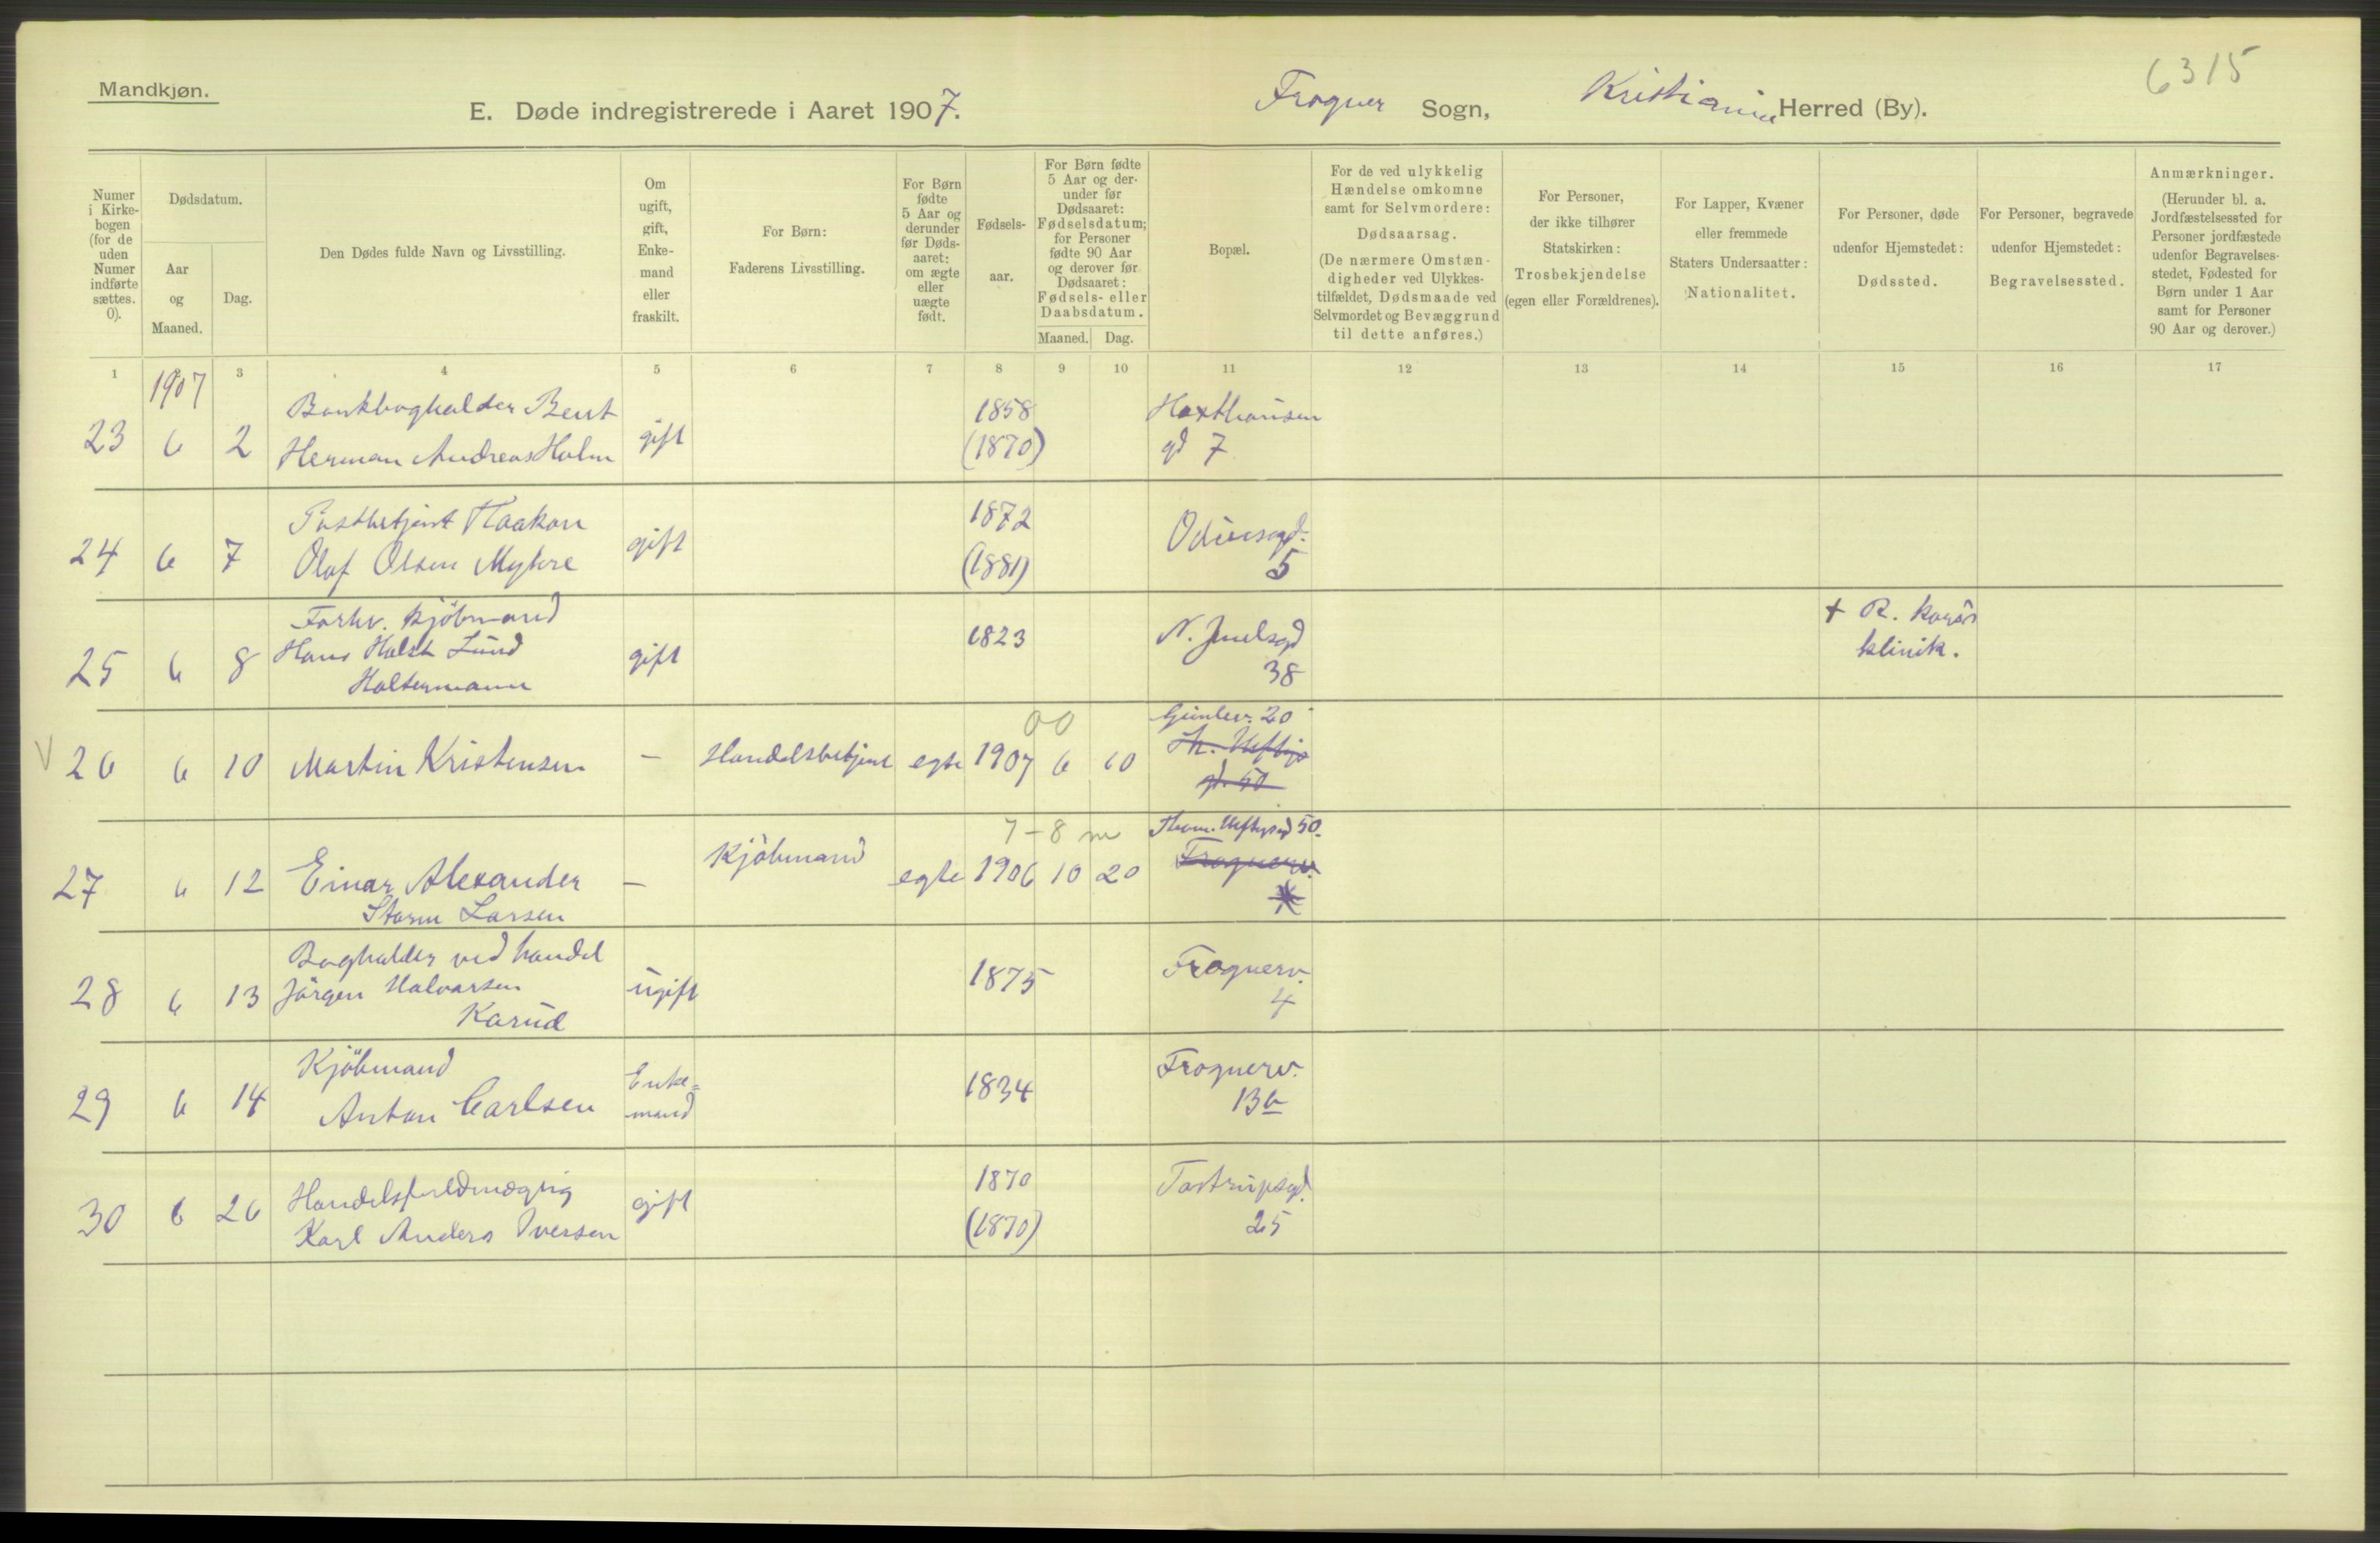 Mandkjøn.
6315
E. Døde indregistrerede i Aaret 1907.
Frogner Sogn, Kristiania Herred (By).
Numer i Kirke-bogen (for de uden Numer indførte sættes. 0).
Dødsdatum.
Aar og Maaned.
Dag.
Den Dødes fulde Navn og Livsstilling.
Om ugift, gift, Enke-mand eller fraskilt.
For Børn:
Faderens Livsstilling.
For Børn fødte 5 Aar og derunder før Døds-aaret: om ægte eller uægte født.
Fødsels-aar.
For Børn fødte 5 Aar og der-under før Dødsaaret: Fødselsdatum; for Personer fødte 90 Aar og derover før Dødsaaret: Fødsels- eller Daabsdatum.
Maaned. Dag.
Bopæl.
For de ved ulykkelig Hændelse omkomne samt for Selvmordere: Dødsaarsag. (De nærmere Omstæn-digheder ved Ulykkes-tilfældet, Dødsmaade ved Selvmordet og Bevæggrund til dette anføres.)
For Personer, der ikke tilhører Statskirken: Trosbekjendelse (egen eller Forældrenes).
For Lapper, Kvæner eller fremmede Staters Undersaatter: Nationalitet.
For Personer, døde udenfor Hjemstedet: Dødssted.
For Personer, begravede udenfor Hjemstedet: Begravelsessted.
Anmærkninger. (Herunder bl. a. Jordfæstelsessted for Personer jordfæstede udenfor Begravelses-stedet, Fødested for Børn under 1 Aar samt for Personer 90 Aar og derover.)
1 2 3 4 5 6 7 8 9 10 11 12 13 14 15 16 17
1907
Bankbogholder Bent 1858 Haxthausen
23 6 2 Herman Andreas Holm gift (1870) gd 7
Postbetjent Haakon 1872 Odinsgd.
24 6 7 Olaf Olsen Myhre gift (1881) 5
Forhv. kjöbmand
25 6 8 Hans Holst Lund gift 1823 N. Juelsgd + R. kors's
Holtermann 38 klinik.
00 Gimlev. 20
V 26 6 10 Martin Kristensen — Handelsbetjent egte 1907 6 10 Th. Heftys
gd. 50
7-8 m Thom. Heftysgd 50.
27 6 12 Einar Alexander — Kjöbmand egte 1906 10 20 Frognerv.
Storm Larsen
Bogholder ved handel
28 6 13 Jörgen Halvorsen ugift 1875 Frognerv.
Karud 4
Kjöbmand Enke= Frognerv.
29 6 14 Anton Carlsen mand 1834 13b
Handelsfuldmægtig 1870 Tostrupsgd.
30 6 26 Karl Anders Iversen gift (1870) 25